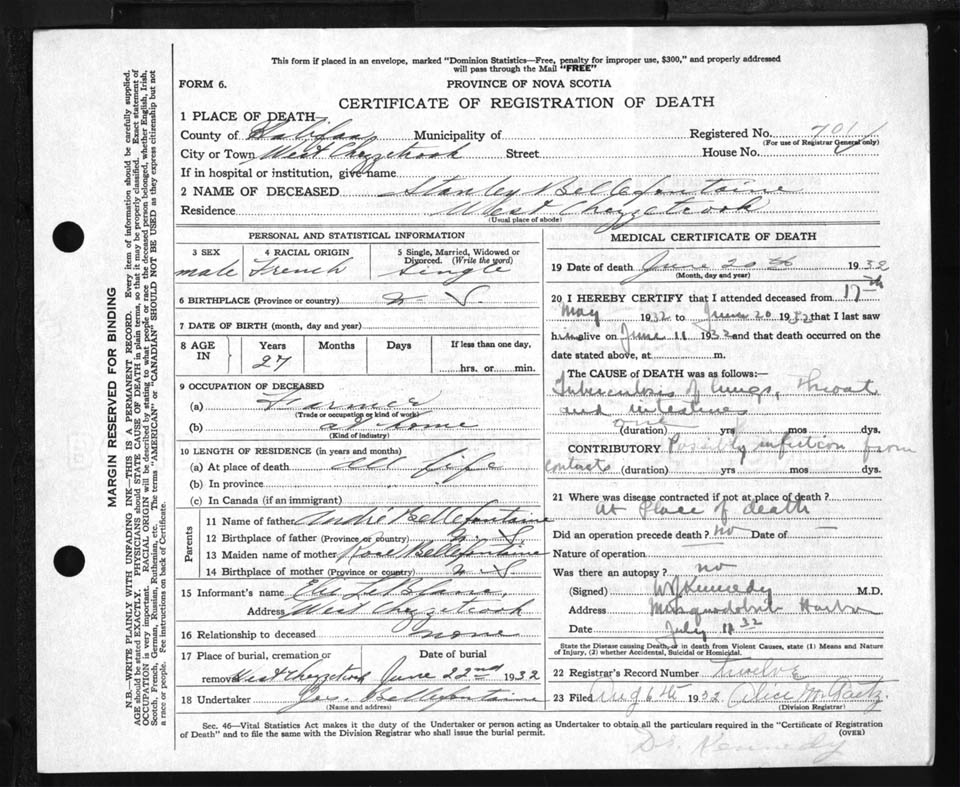 This form if placed in an envelope, marked "Dominion Statistics—Free, penalty for improper use, $300," and properly addressed
will pass through the Mail "FREE"
FORM 6.
PROVINCE OF NOVA SCOTIA
CERTIFICATE OF REGISTRATION OF DEATH
1 PLACE OF DEATH—
County of Halifax Municipality of Registered No. 701
(For use of Registrar General only)
City or Town West Chezzetcook Street House No.
If in hospital or institution, give name
2 NAME OF DECEASED Stanley Bellefontaine
Residence West Chezzetcook
(Usual place of abode)
PERSONAL AND STATISTICAL INFORMATION
3 SEX 4 RACIAL ORIGIN 5 Single, Married, Widowed or
Divorced. (Write the word)
male French Single
6 BIRTHPLACE (Province or country) N S.
7 DATE OF BIRTH (month, day and year)
8 AGE IN Years Months Days If less than one day,
27
hrs. or min.
9 OCCUPATION OF DECEASED
(a) Farmer
(Trade or occupation or kind of work)
(b) at home
(Kind of industry)
10 LENGTH OF RESIDENCE (in years and months)
(a) At place of death all life
(b) In province
(c) In Canada (if an immigrant)
Parents
11 Name of father André Bellefontaine
12 Birthplace of father (Province or country) N S
13 Maiden name of mother Rose Bellefontaine
14 Birthplace of mother (Province or country) N S
15 Informant's name, LeBlanc,
Address West Chezzetcook
16 Relationship to deceased none
17 Place of burial, cremation or Date of burial
removal West Chezzetcook June 22nd 1932
18 Undertaker Jos. Bellefontaine
(Name and address)
MEDICAL CERTIFICATE OF DEATH
19 Date of death June 20th 1932
(Month, day and year)
20 I HEREBY CERTIFY that I attended deceased from 17th
May 1932 to June 20 1932 that I last saw
him alive on June 11 1932 and that death occurred on the
date stated above, at m.
The CAUSE of DEATH was as follows:
Tuberculosis of lungs, throat
and intestines
(duration) yrs mos dys.
CONTRIBUTORY Possibly infection from
contacts (duration) yrs mos dys.
21 Where was disease contracted if not at place of death ?
At Place of death
Did an operation precede death ? no Date of —
Nature of operation —
Was there an autopsy ? no
(Signed) Kennedy M.D.
Address Musquodoboit Harbor
Date July 11 32
State the Disease causing Death, or in death from Violent Causes, state (1) Means and Nature
of Injury, (2) whether Accidental, Suicidal or Homicidal.
22 Registrar's Record Number twelve
23 Filed Aug 6th 1932 Alice M.
(Division Registrar)
Sec. 46—Vital Statistics Act makes it the duty of the Undertaker or person acting as Undertaker to obtain all the particulars required in the "Certificate of Registration
of Death" and to file the same with the Division Registrar who shall issue the burial permit.
(OVER)
Dr. Kennedy
MARGIN RESERVED FOR BINDING
N.B.—WRITE PLAINLY WITH UNFADING INK—THIS IS A PERMANENT RECORD. Every item of information should be carefully supplied.
AGE should be stated EXACTLY. PHYSICIANS should STATE CAUSE OF DEATH in plain terms, so that it may be properly classified. Exact statement of
OCCUPATION is very important. RACIAL ORIGIN will be described by stating to what people or race the deceased person belonged, whether English, Irish,
Scotch, French, German, Russian, Ruthenian, etc. The terms "AMERICAN" or "CANADIAN" SHOULD NOT BE USED as they express citizenship but not
a race or people. Fee instructions on back of Certificate.